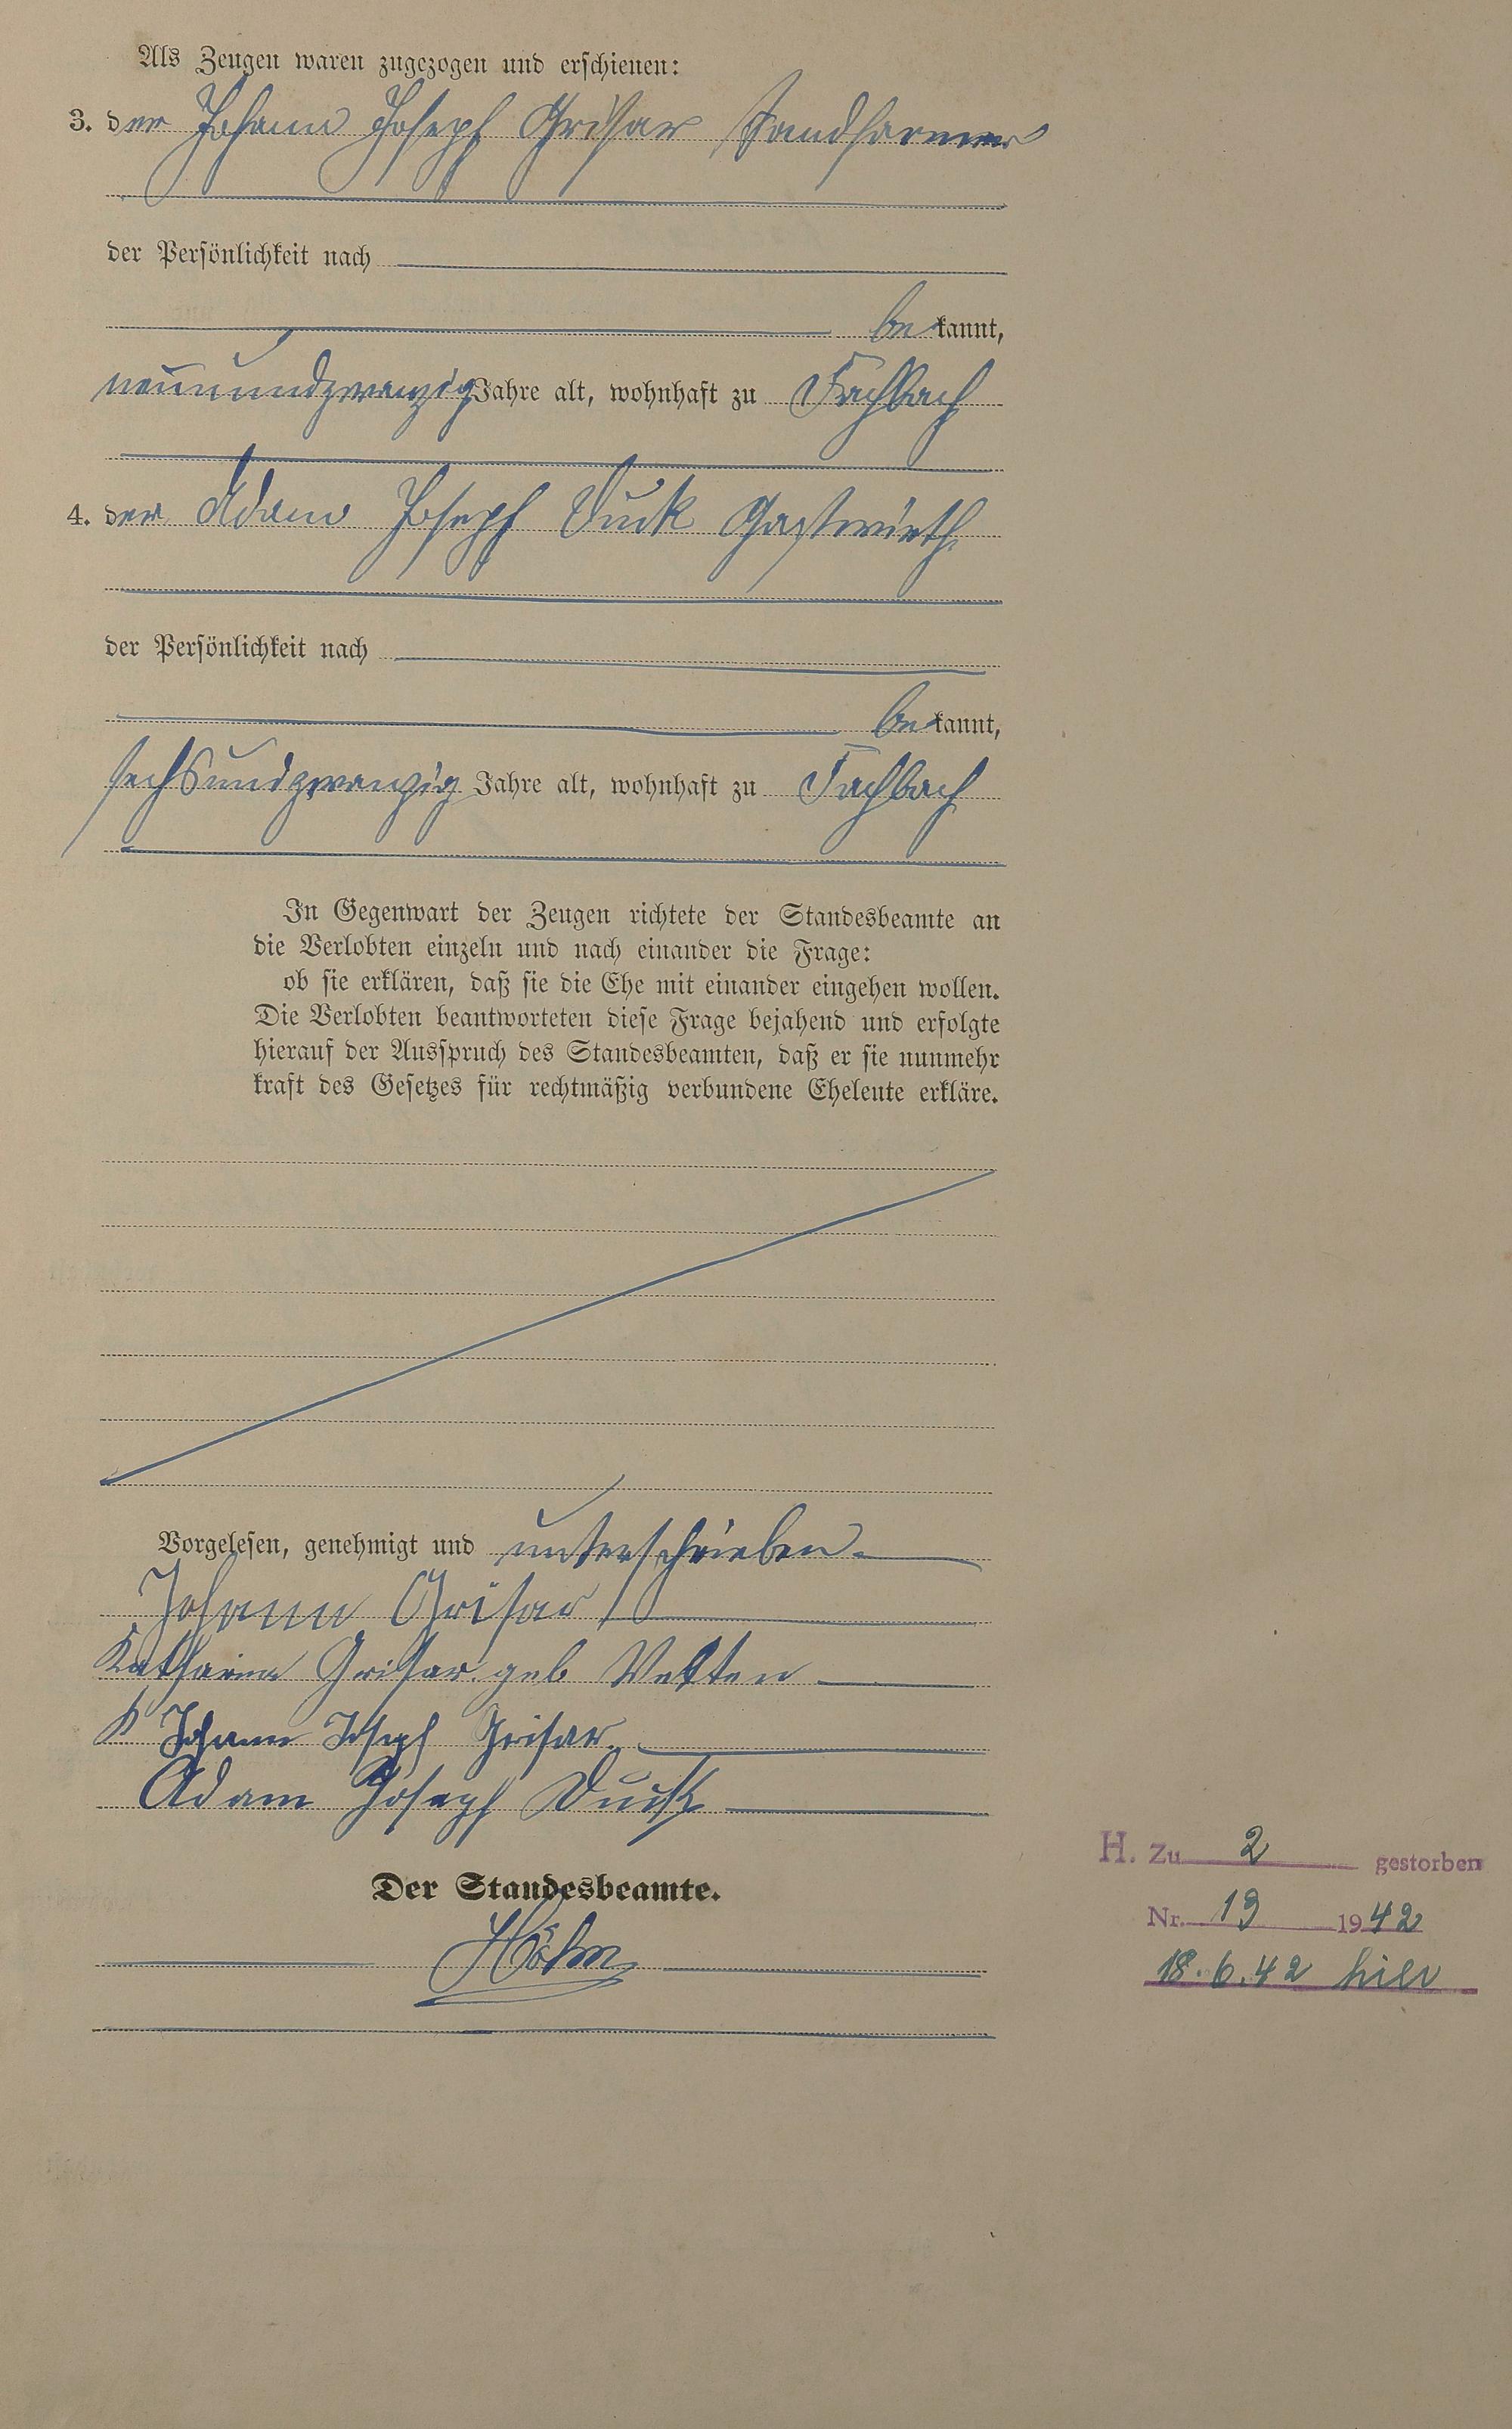 Als Zeugen waren zugezogen und erschienen:
3. der Johann Joseph Grisar Sandformer
der Persönlichkeit nach
be kannt,
neunundzwanzig Jahre alt, wohnhaft zu Fachbach
4. der Adam Joseph Duck Gastwirth
der Persönlichkeit nach
be kannt,
sechsundzwanzig Jahre alt, wohnhaft zu Fachbach
In Gegenwart der Zeugen richtete der Standesbeamte an
die Verlobten einzeln und nach einander die Frage:
ob sie erklären, daß sie die Ehe mit einander eingehen wollen.
Die Verlobten beantworteten diese Frage bejahend und erfolgte
hierauf der Ausspruch des Standesbeamten, daß er sie nunmehr
kraft des Gesetzes für rechtmäßig verbundene Eheleute erkläre.
Vorgelesen, genehmigt und unterschrieben
Johann Grisar
Katharina Grisar geb Velten
Johann Joseph Grisar
Adam Joseph Duck
Der Standesbeamte.
H. Zu 2 gestorben
Nr. 13 1942
18.6.42 hier